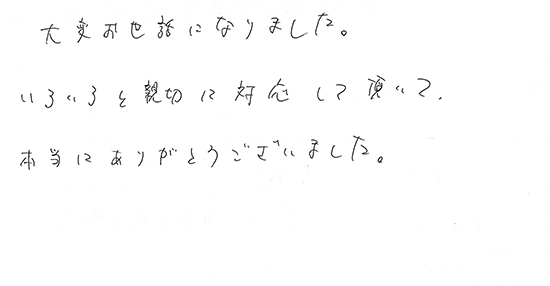 大変お世話になりました。
いろいろと親切に対応して頂いて、
本当にありがとうございました。